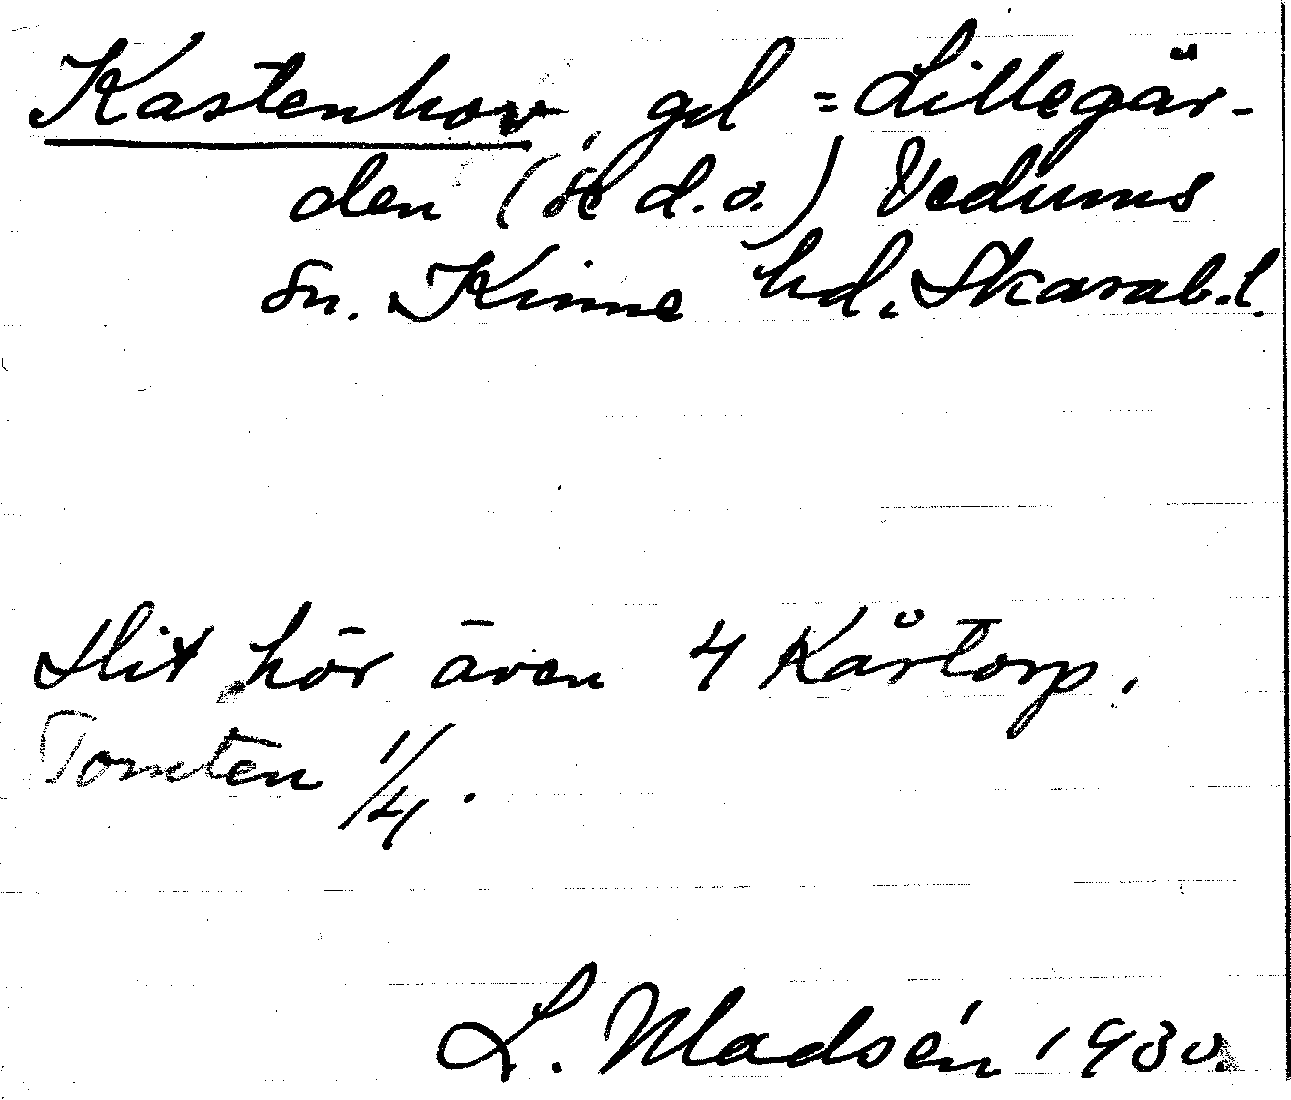 Kastenhov, gd = Lillegår-
den (se d.o.) Vedums
sn. Kinne hd. Skarab.l.
Hit hör även 4 Kårtorp,
Tomten 1/4.
L. Madsén 1930.